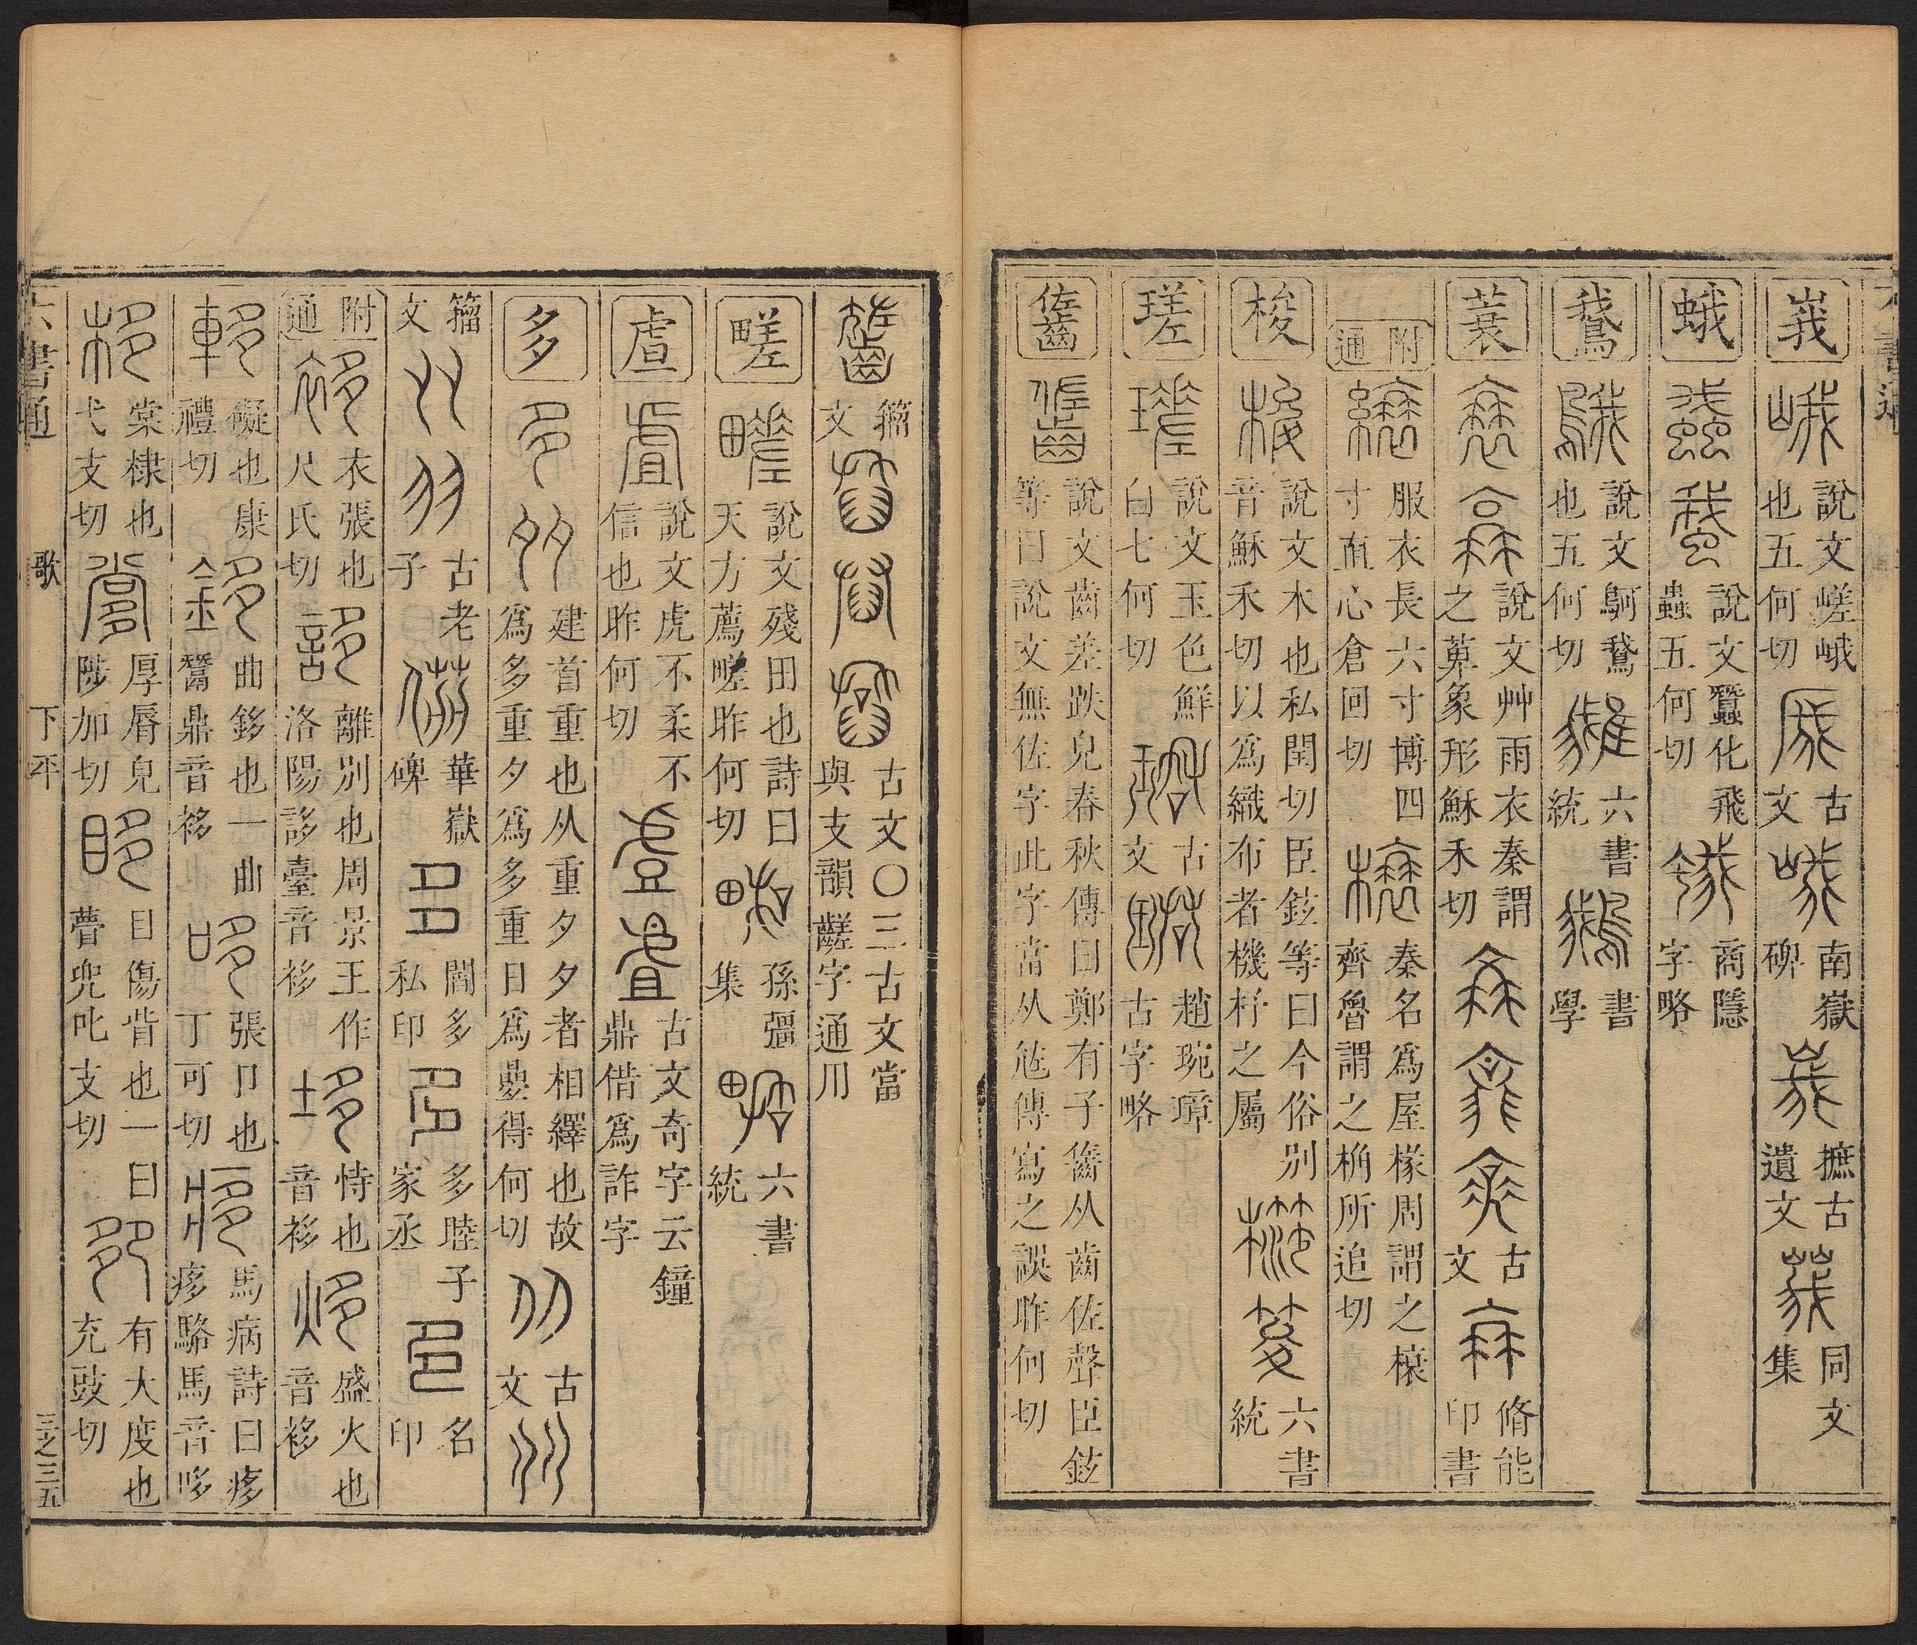 峩 峨 說文嵯峨也五何切 古文 南嶽碑 摭古遺文 同文集
蛾 說文蠶化飛蟲五何切 商隱字略
鵞 說文鴚鵞也五何切 六書統 書學
蓑 說文艸雨衣秦謂之萆象形穌禾切 古文 脩能印書
附通 服衣長六寸博四寸直心倉回切 秦名爲屋椽周謂之榱齊魯謂之桷所追切
梭 說文木也私閏切臣鉉等曰今俗別音穌禾切以爲織布者機杼之屬 六書統
瑳 說文玉色鮮白七何切 古文 趙琬璋古字略
齹 說文齒差跌皃春秋傳曰鄭有子齹从齒佐聲臣鉉等曰說文無佐字此字當从㝾傳寫之誤昨何切
籀文 古文〇三古文當與支韻齹字通用
㽨 說文殘田也詩曰天方薦㽨昨何切 孫彊集 六書統
虘 說文虎不柔不信也昨何切 古文奇字云鐘鼎借爲詐字
多 建首重也从重夕夕者相繹也故爲多重夕爲多重日爲疊得何切 古文
籀文 古老子 華嶽碑 閻多私印 多睦子家丞 名印
附通 衣張也尺氏切 離別也周景王作洛陽誃臺音袳 恃也音袳 盛火也音袳
礙也康禮切 曲鉹也一曲鬵鼎音袳 張口也丁可切 馬病詩曰痑痑駱馬音哆
棠棣也弋支切 厚脣皃陟加切 目傷眥也一曰瞢兜叱支切 有大度也充豉切
六書通 歌 下平 三之三五